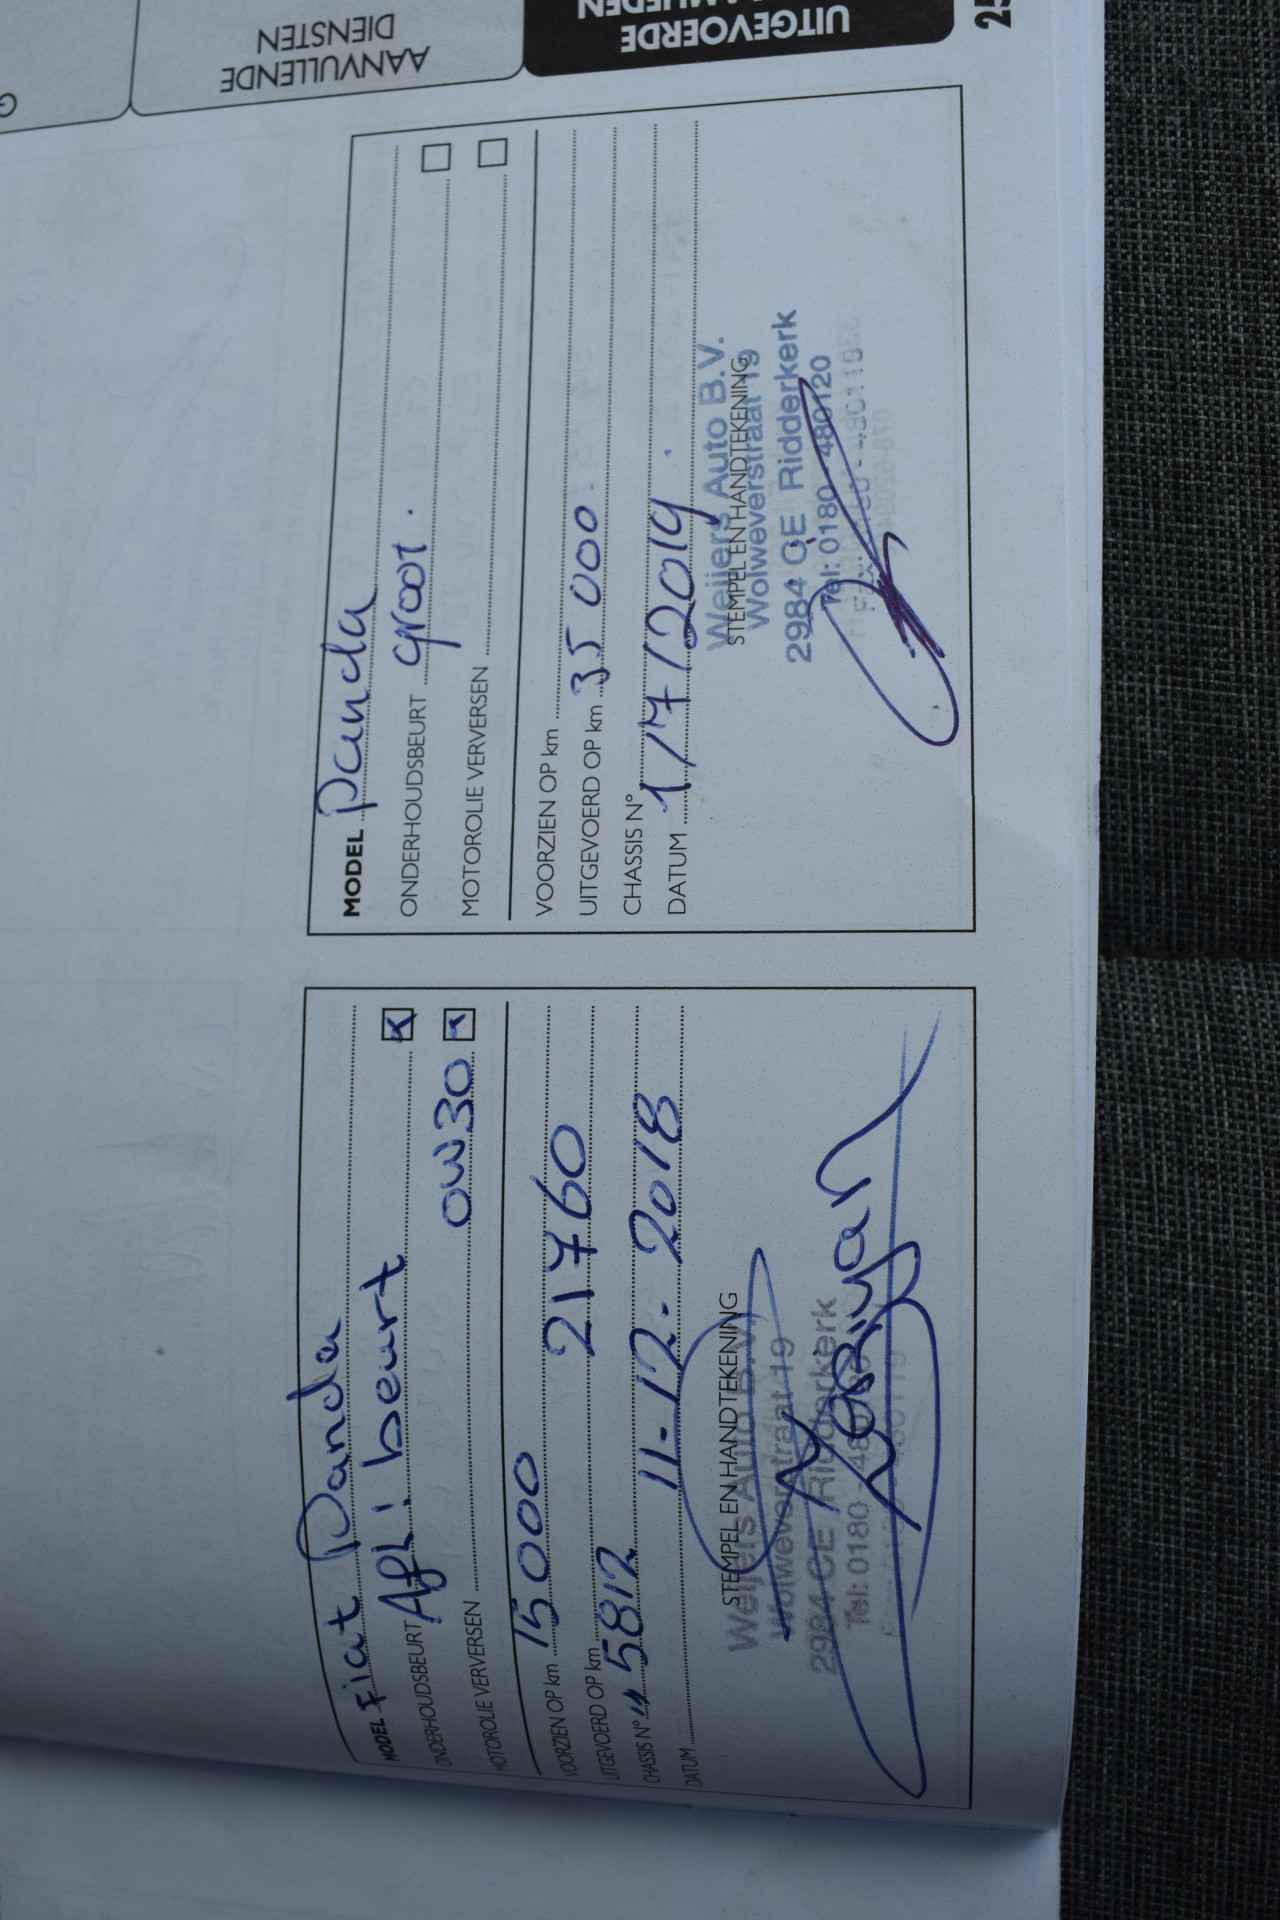 MODEL Fiat Panda
ONDERHOUDSBEURT Afl. beurt X
MOTOROLIE VERVERSEN 0W30
VOORZIEN OP km 15000
UITGEVOERD OP km 21760
CHASSIS N° 5812
DATUM 11-12-2018
STEMPEL EN HANDTEKENING
Weijers Auto B.V.
Wolweverstraat 19
2984 CE Ridderkerk
Tel: 0180 - 480120
MODEL Panda
ONDERHOUDSBEURT groot.
MOTOROLIE VERVERSEN
VOORZIEN OP km
UITGEVOERD OP km 35000
CHASSIS N°
DATUM 1/7/2019
STEMPEL EN HANDTEKENING
Weijers Auto B.V.
Wolweverstraat 19
2984 CE Ridderkerk
Tel: 0180 - 480120
AANVULLENDE
DIENSTEN
UITGEVOERDE
25